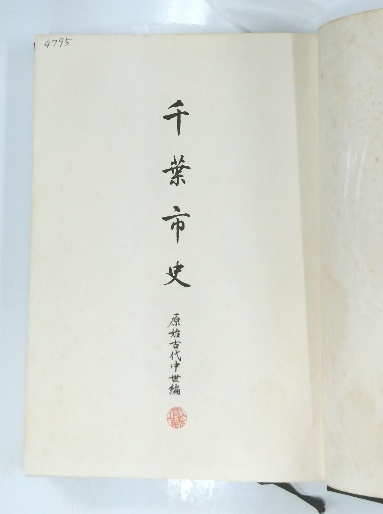 4795
千葉市史
原始古代中世編